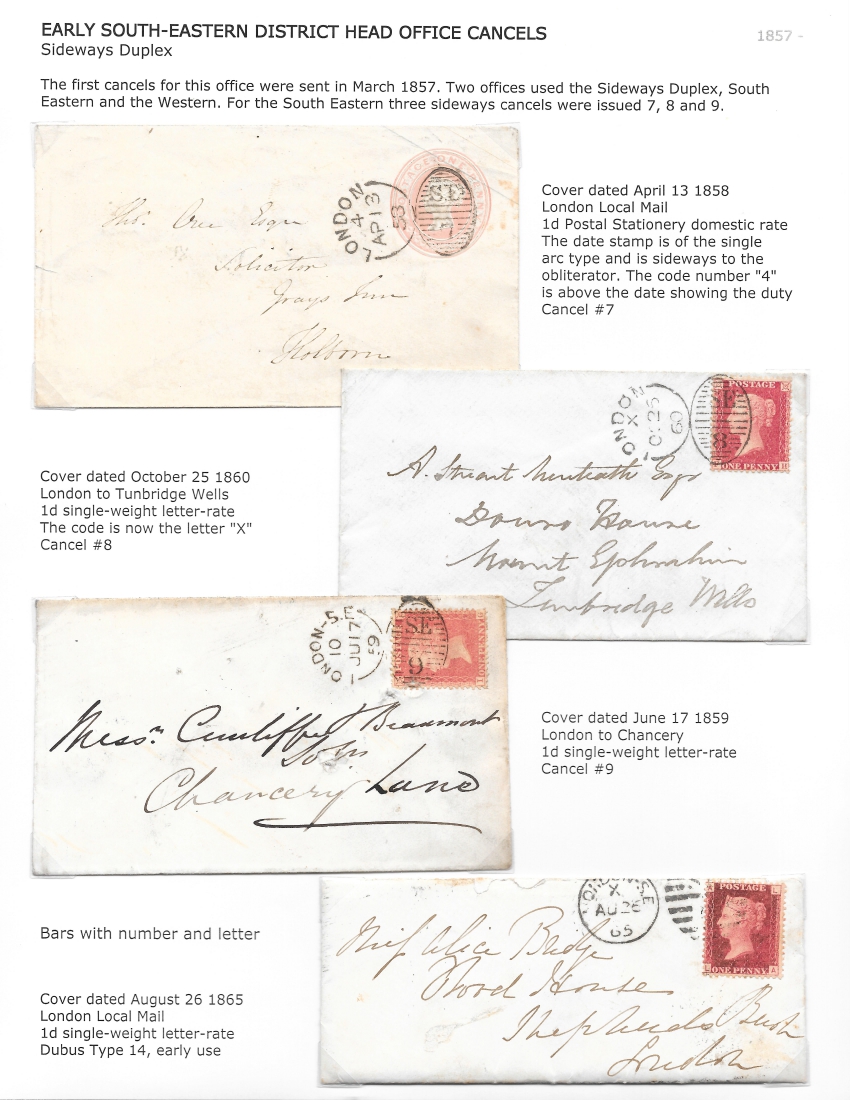 EARLY SOUTH-EASTERN DISTRICT HEAD OFFICE CANCELS
1857 -
Sideways Duplex
The first cancels for this office were sent in March 1857. Two offices used the Sideways Duplex, South
Eastern and the Western. For the South Eastern three sideways cancels were issued 7, 8 and 9.
LONDON
4
AP 13
58
SE
7
Esqre
Solicitor
Grays Inn
Holborn
Cover dated April 13 1858
London Local Mail
1d Postal Stationery domestic rate
The date stamp is of the single
arc type and is sideways to the
obliterator. The code number "4"
is above the date showing the duty
Cancel #7
LONDON
X
OC 25
60
SE
8
POSTAGE
ONE PENNY
A. Stuart Menteath Esqr
Douro House
Mount Ephraim
Tunbridge Wells
Cover dated October 25 1860
London to Tunbridge Wells
1d single-weight letter-rate
The code is now the letter "X"
Cancel #8
LONDON-S.E
10
JU 17
59
SE
9
Messrs Cunliffe & Beaumont
Chancery Lane
Cover dated June 17 1859
London to Chancery
1d single-weight letter-rate
Cancel #9
LONDON-SE
X
AU 26
65
POSTAGE
ONE PENNY
Miss Alice Budge
Wood House
Shepherds Bush
London
Bars with number and letter
Cover dated August 26 1865
London Local Mail
1d single-weight letter-rate
Dubus Type 14, early use